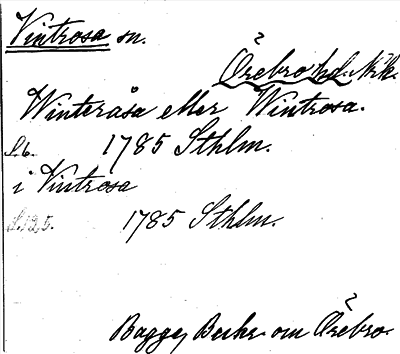 Vintrosa sn.
Örebro hd. Nrk.
Winteråsa eller Wintrosa.
S.6. 1785 Sthlm.
i Vintrosa
S.125. 1785 Sthlm.
Bagge, Beskr. om Örebro.